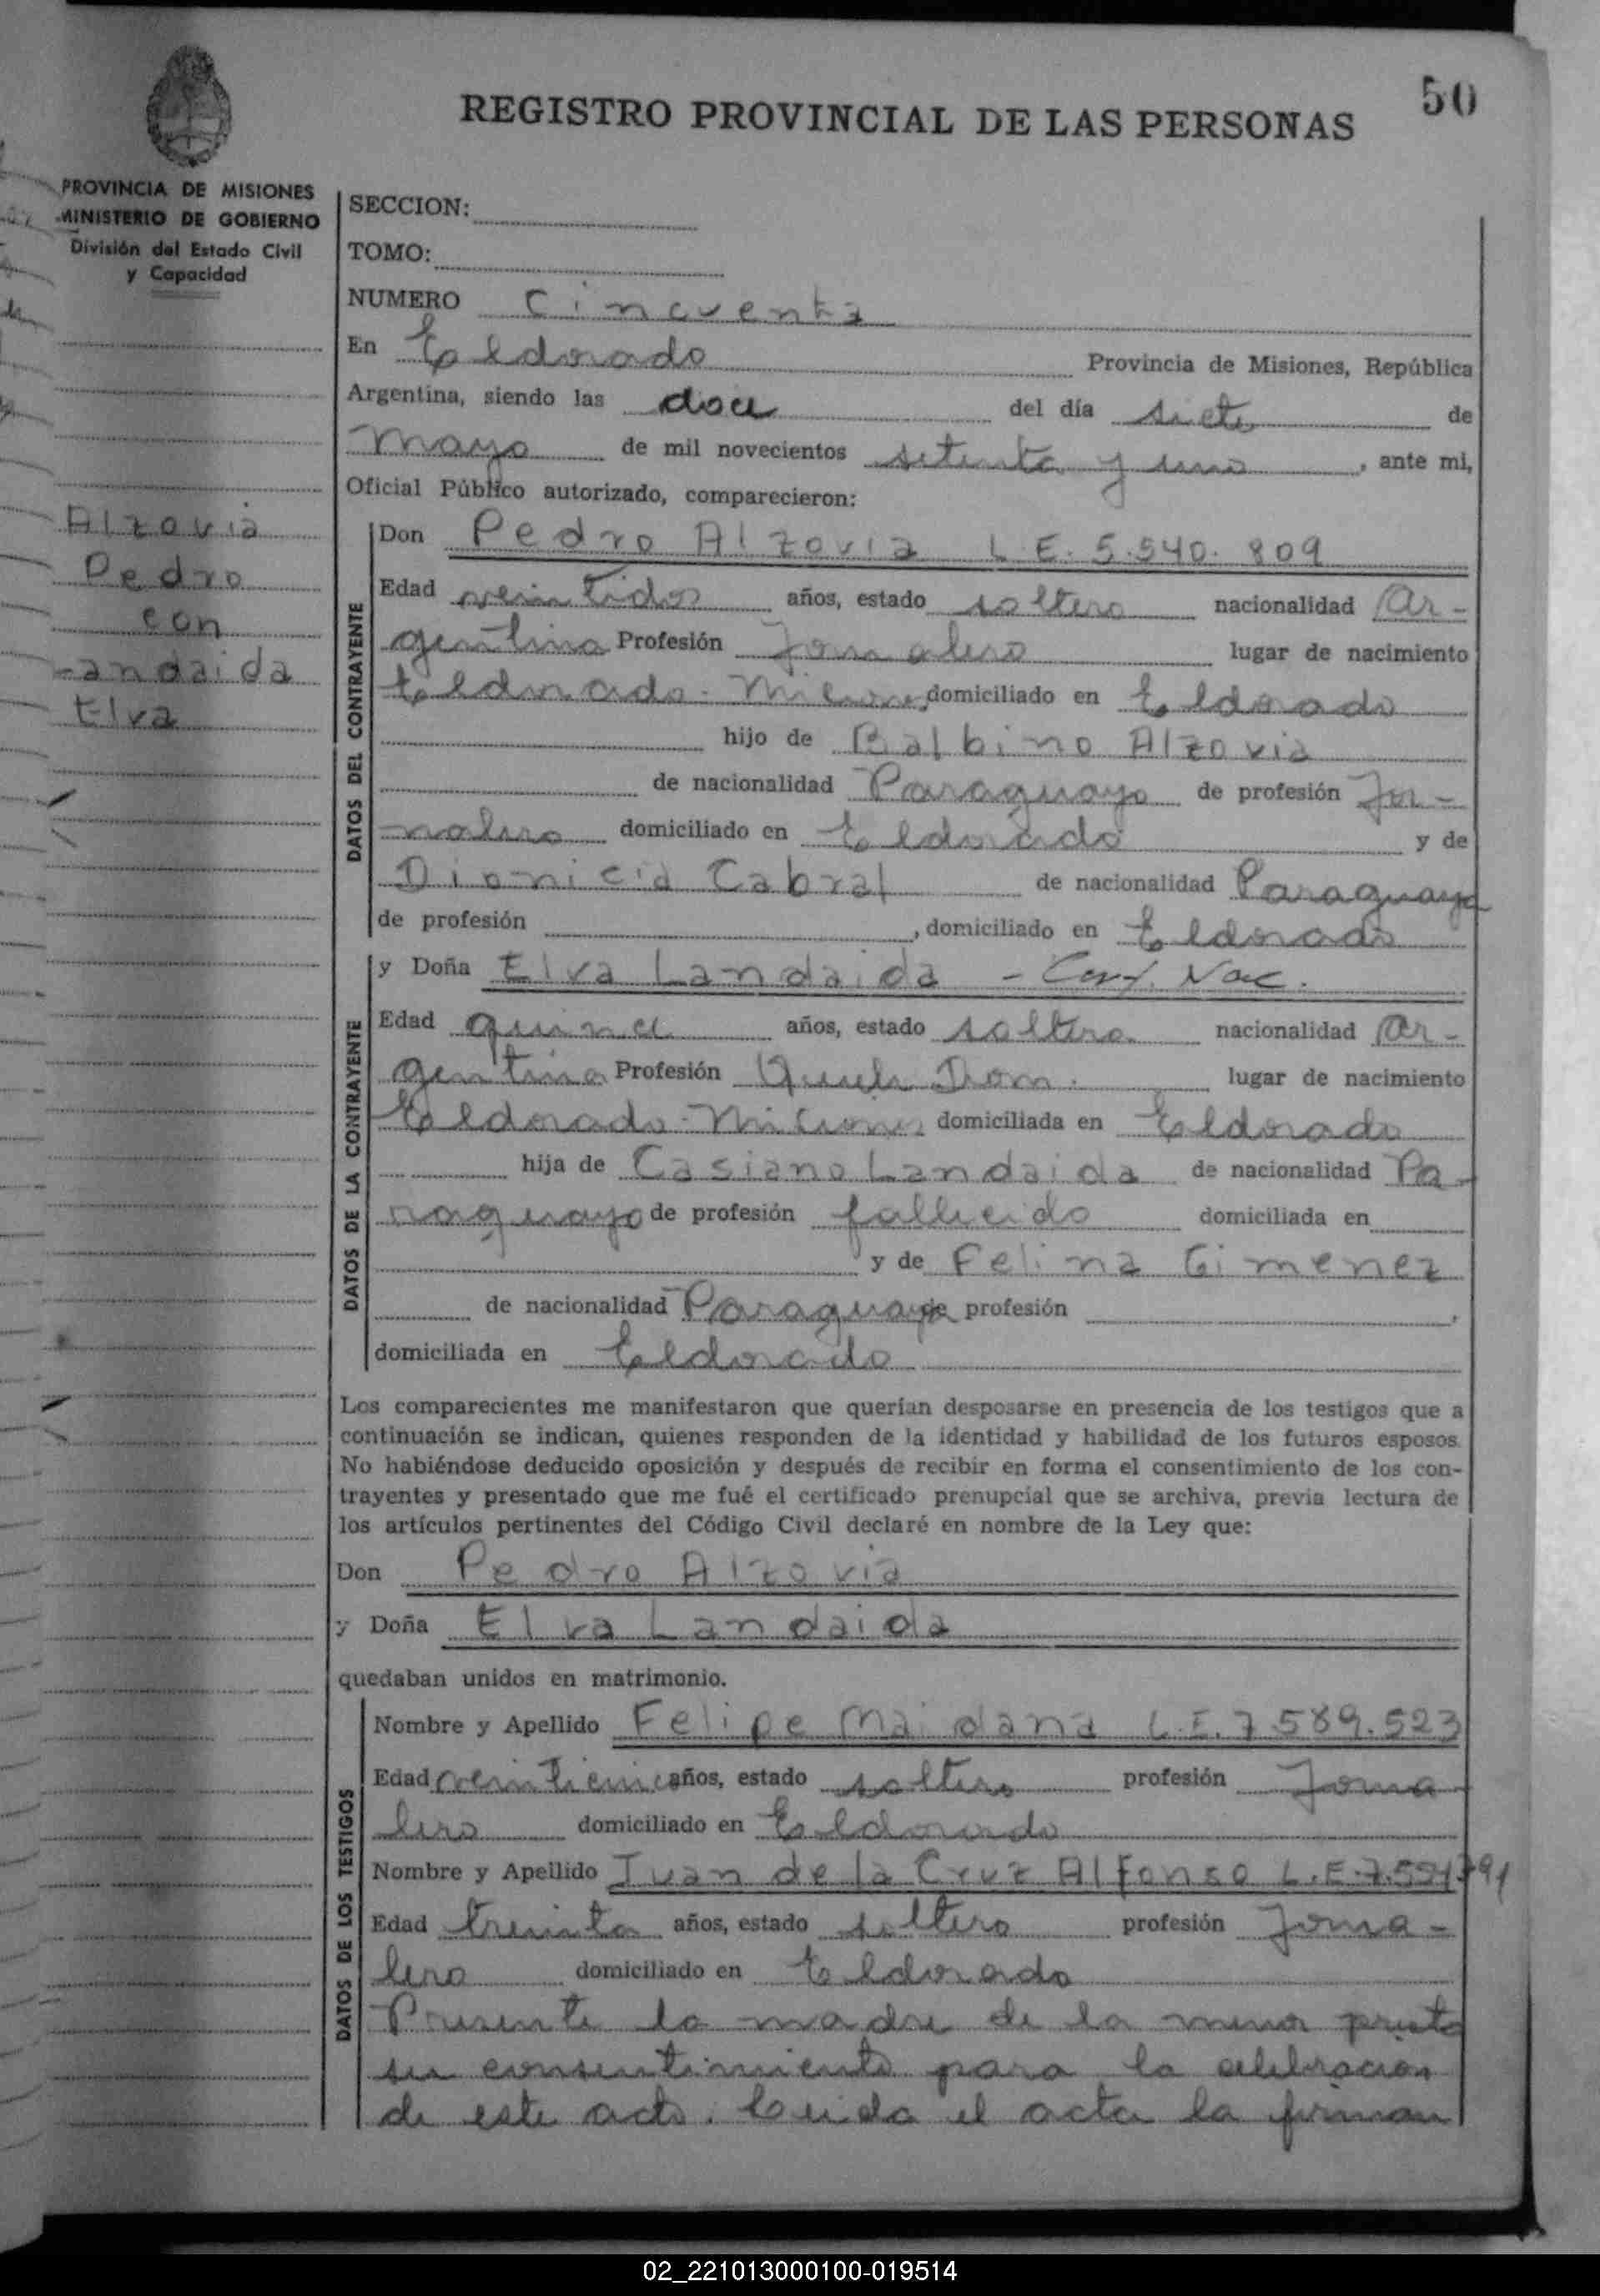 50
REGISTRO PROVINCIAL DE LAS PERSONAS
PROVINCIA DE MISIONES
MINISTERIO DE GOBIERNO
División del Estado Civil
y Capacidad
Alzovia
Pedro
con
Landaida
Elva
SECCION:
TOMO:
NUMERO Cincuenta
En Eldorado Provincia de Misiones, República
Argentina, siendo las doce del día siete de
Mayo de mil novecientos setenta y uno, ante mi,
Oficial Público autorizado, comparecieron:
DATOS DEL CONTRAYENTE
Don Pedro Alzovia L.E. 5.540.809
Edad veintidos años, estado soltero nacionalidad Ar-
gentina Profesión Jornalero lugar de nacimiento
Eldorado - Misiones domiciliado en Eldorado
hijo de Balbino Alzovia
de nacionalidad Paraguayo de profesión Jor-
nalero domiciliado en Eldorado y de
Dionicia Cabral de nacionalidad Paraguaya
de profesión , domiciliado en Eldorado
DATOS DE LA CONTRAYENTE
y Doña Elva Landaida - Cert. Nac.
Edad quince años, estado soltera nacionalidad Ar-
gentina Profesión Queh. Dom. lugar de nacimiento
Eldorado - Misiones domiciliada en Eldorado
hija de Casiano Landaida de nacionalidad Pa-
raguayo de profesión fallecido domiciliada en
y de Felina Gimenez
de nacionalidad Paraguaya de profesión ,
domiciliada en Eldorado
Los comparecientes me manifestaron que querían desposarse en presencia de los testigos que a
continuación se indican, quienes responden de la identidad y habilidad de los futuros esposos.
No habiéndose deducido oposición y después de recibir en forma el consentimiento de los con-
trayentes y presentado que me fué el certificado prenupcial que se archiva, previa lectura de
los artículos pertinentes del Código Civil declaré en nombre de la Ley que:
Don Pedro Alzovia
y Doña Elva Landaida
quedaban unidos en matrimonio.
DATOS DE LOS TESTIGOS
Nombre y Apellido Felipe Maidana L.E. 7.589.523
Edad años, estado soltero profesión Jorna-
lero domiciliado en Eldorado
Nombre y Apellido Juan de la Cruz Alfonso L.E.
Edad treinta años, estado soltero profesión Jorna-
lero domiciliado en Eldorado
Presente la madre de la menor presta
su consentimiento para la celebracion
de este acto. Leida el acta la firman
02_221013000100-019514